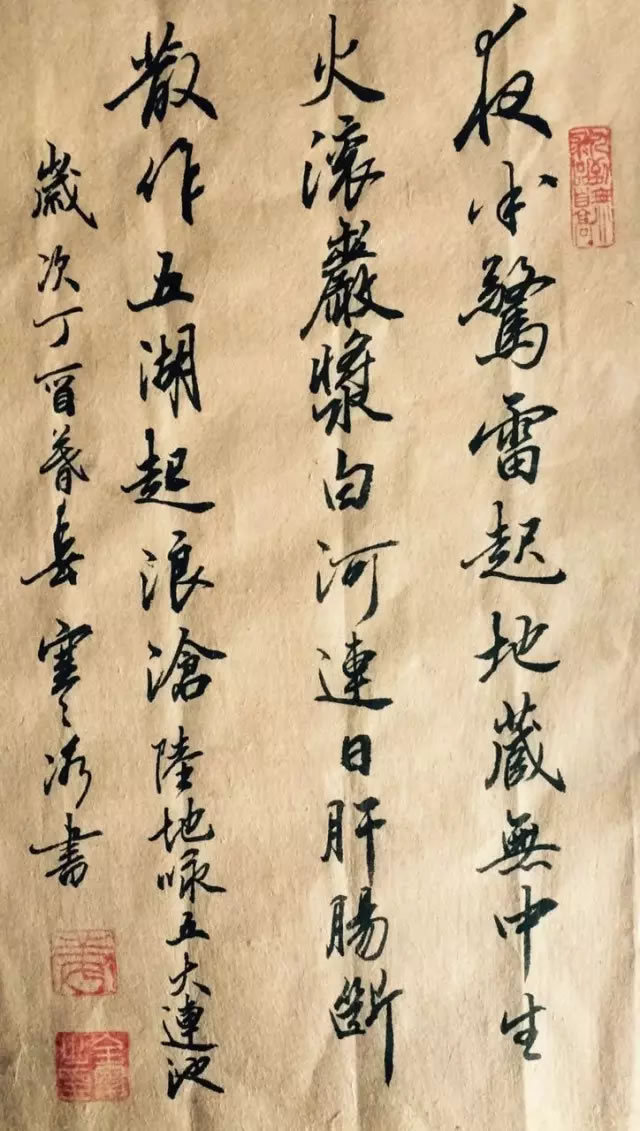 夜半驚雷起地藏無中生
火滾巖漿白河連日肝腸斷
散作五湖起浪滄 陸地咏五大連池
歲次丁酉暮春 寒冰書